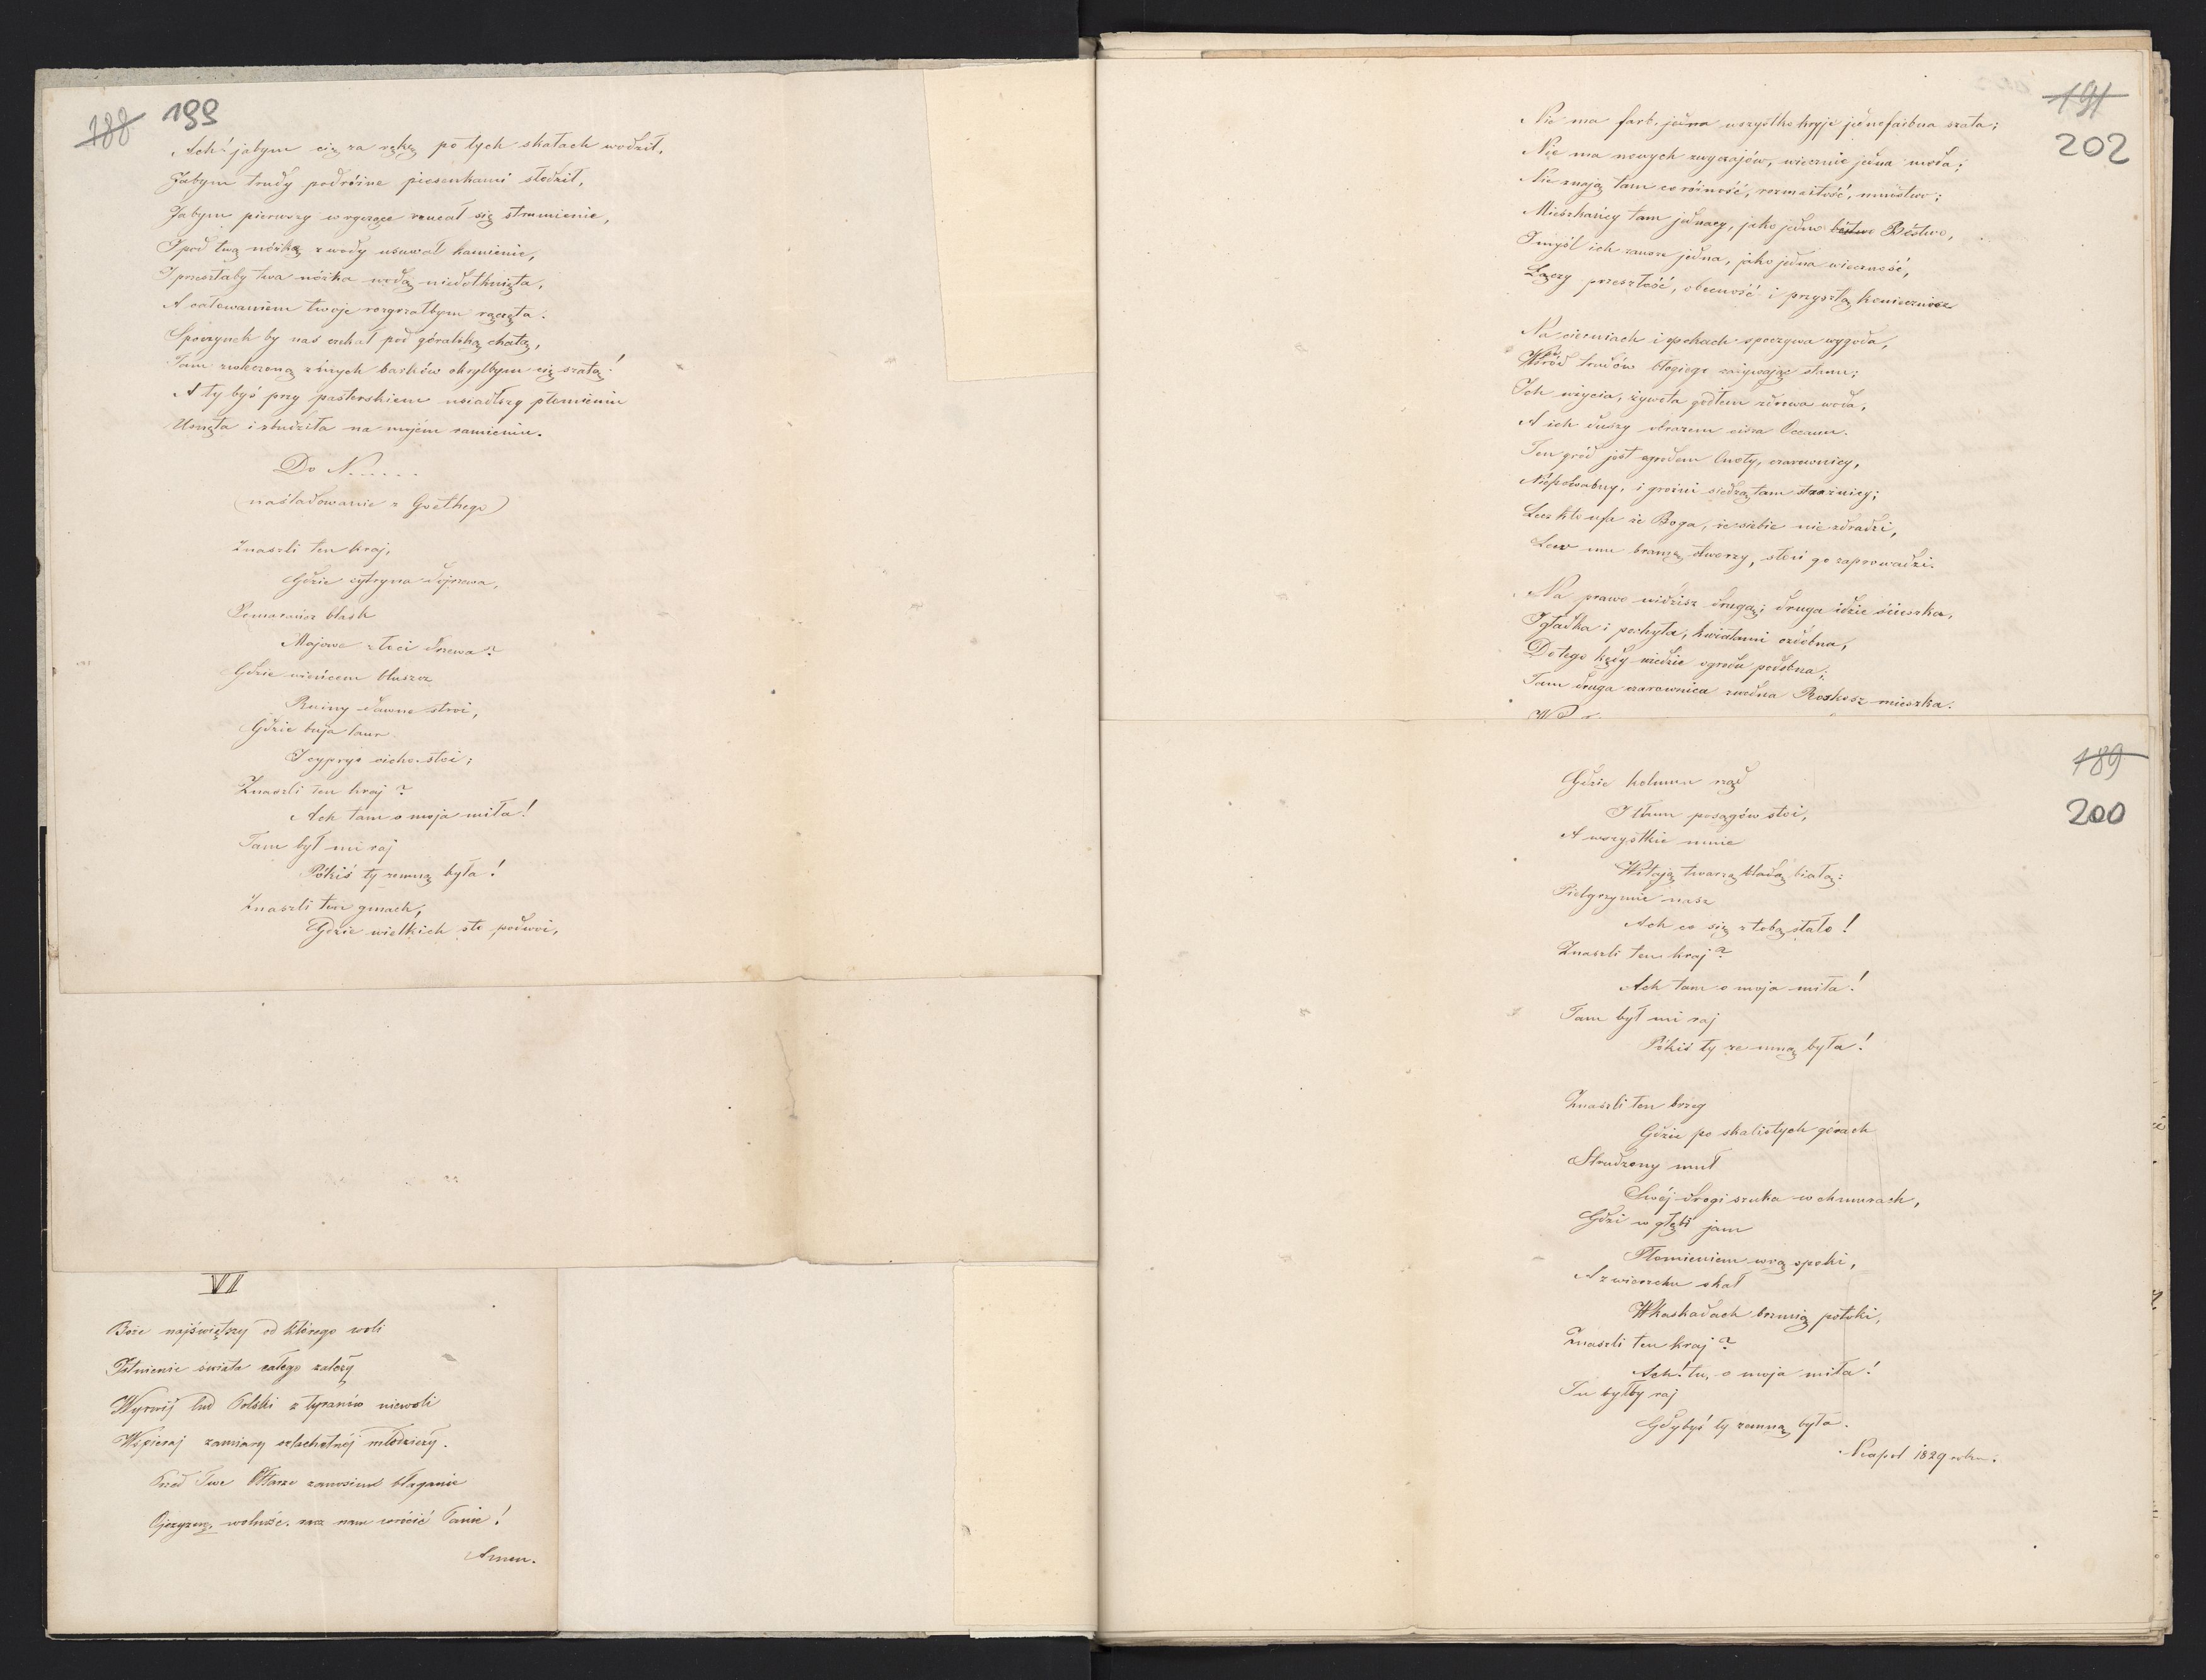 188 199
Ach! jabym cię za rękę po tych skałach wodził,
Jabym trudy podróżne piosenkami słodził,
Jabym pierwszy w ryczące rzucał się strumienie,
I pod twą nóżkę z wody usuwał kamienie,
I przeszłaby twa nóżka wodą niedotknięta,
A całowaniem twoje rozgrzałbym rączęta.
Spoczynek by nas czekał pod góralską chatą,
Tam zwleczoną z mych barków okryłbym cię szatą!
A ty byś przy pasterskiem usiadłszy płomieniu
Usnęła i zbudziła na mojém ramieniu.
Do N.....
(naśladowanie z Goethego)
Znaszli ten kraj,
Gdzie cytryna dojrzewa,
Pomarańcz blask
Majowe złoci drzewa?
Gdzie wieńcem bluszcz
Ruiny dawne stroi,
Gdzie buja laur
I cyprys cicho stoi;
Znaszli ten kraj?
Ach tam o moja miła!
Tam był mi raj
Pókiś ty zemną była!
Znaszli ten gmach,
Gdzie wielkich sto podwoi,
VI
Boże najświętszy od którego woli
Istnienie świata całego zależy
Wyrwij lud Polski z tyranów niewoli
Wspieraj zamiary szlachetnéj młodzieży.
Przed Twe Ołtarze zanosim błaganie
Ojczyznę, wolność, racz nam wrócić Panie!
Amen.
191
202
Nie ma farb, jedna wszystko kryje jednofarbna szata;
Nie ma nowych zwyczajów, wiecznie jedna moda;
Nie znają tam co różność, rozmaitość, mnóstwo;
Mieszkańcy tam jednacy, jako jedno bóstwo Bóstwo,
I myśl ich zawsze jedna, jako jedna wieczność,
Łączy przeszłość, obecność i przyszłą konieczność
Na cierniach i głochach spoczywa wygoda,
Wśród trudów błogiego zażywając stanu;
Ich użycia, żywota godłem zdrowa woda,
A ich duszy obrazem cisza Oceanu.
Ten gród jest ogrodem Cnoty, czarownicy,
Niepowabny, i groźni siedzą tam strażnicy;
Lecz kto ufa że Boga, że siebie nie zdradzi,
Lew mu bramę otworzy, słoń go zaprowadzi.
Na prawo widzisz drugą; druga idzie ścieszka,
I gładka i pochyła, kwiatami ozdobna,
Do tego kędy wiedzie ogrodu podobna;
Tam druga czarownica zwodna Rozkosz mieszka.
189
200
Gdzie kolumn rząd
I tłum posągów stoi,
A wszystkie mnie
Witają twarzą bladą białą:
Pielgrzymie nasz
Ach co się z tobą stało!
Znaszli ten kraj?
Ach tam o moja miła!
Tam był mi raj
Pókiś ty ze mną była!
Znaszli ten brzeg
Gdzie po skalistych górach
Strudzony muł
Swéj drogi szuka w chmurach,
Gdzi w głębi jam
Płomieniem wrą opoki,
A z wierzchu skał
W kaskadach brzmią potoki,
Znaszli ten kraj?
Ach! tu, o moja miła!
Tu byłby raj
Gdybyś ty zemną była.
Neapol 1829 roku.